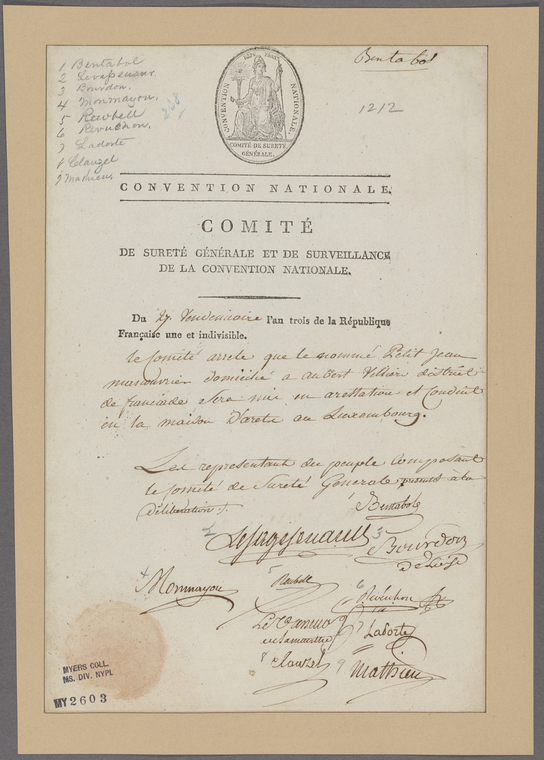 1 Bentabol
2 Levasseur.
3 Bourdon.
4 Monmayou.
5 Rewbell
6 Reverchon.
7 Ladorte
8 Clauzel
9 Mathieus
268
Bentabol
1212
CONVENTION NATIONALE.
COMITÉ DE SURETÉ
GÉNÉRALE.
CONVENTION NATIONALE.
COMITÉ
DE SURETÉ GÉNÉRALE ET DE SURVEILLANCE
DE LA CONVENTION NATIONALE.
Du 27 Vendemiaire l'an trois de la République
Française une et indivisible.
le Comité arrete que le nommé Petit Jean
manouvrier domicilié a aubert Villier district
de franciade sera mis en arestation et Conduit
en la maison D'arets au Luxembourg.
Les representant du peuple Composant
le Comité de Sureté Generale à la
Déliberation.
Bentabole
2 Lesage Senault 3 Bourdon
De L'oise
4 Monmayou 5 Reubell 6 Reverchon
7 Laporte
8 Clauzel 9 Mathieu
MYERS COLL.
MS. DIV. NYPL
MY 2603